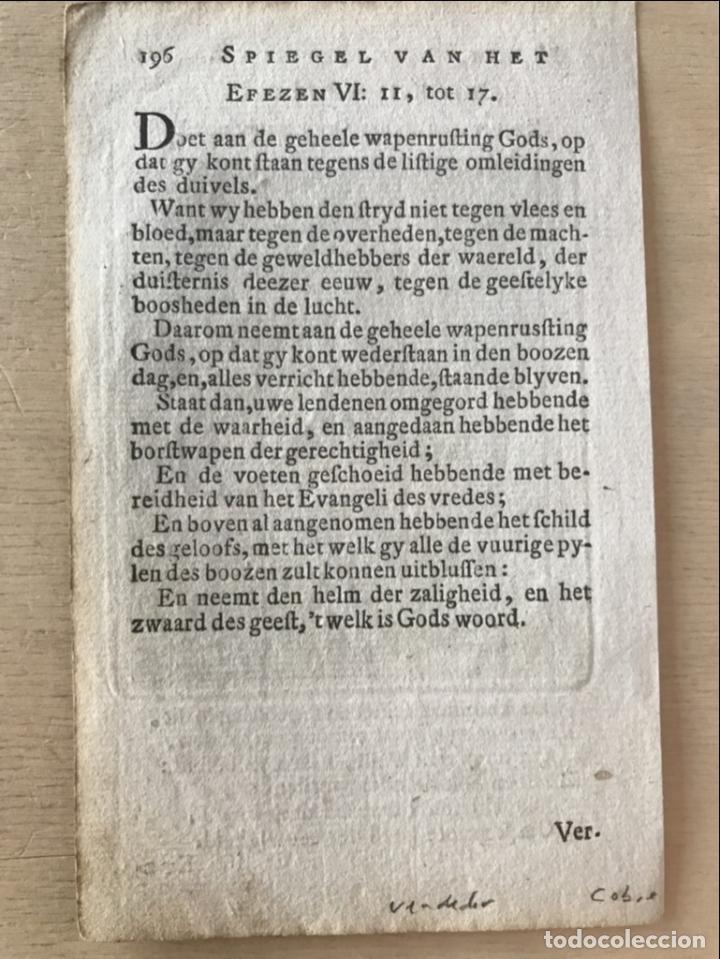 196 SPIEGEL VAN HET
EFEZEN VI: 11, tot 17.
Doet aan de geheele wapenruſting Gods, op
dat gy kont ſtaan tegens de liſtige omleidingen
des duivels.
Want wy hebben den ſtryd niet tegen vlees en
bloed, maar tegen de overheden, tegen de mach-
ten, tegen de geweldhebbers der waereld, der
duiſternis deezer eeuw, tegen de geeſtelyke
boosheden in de lucht.
Daarom neemt aan de geheele wapenrusſting
Gods, op dat gy kont wederſtaan in den boozen
dag, en, alles verricht hebbende, ſtaande blyven.
Staat dan, uwe lendenen omgegord hebbende
met de waarheid, en aangedaan hebbende het
borſtwapen der gerechtigheid;
En de voeten geſchoeid hebbende met be-
reidheid van het Evangeli des vredes;
En boven al aangenomen hebbende het ſchild
des geloofs, met het welk gy alle de vuurige py-
len des boozen zult konnen uitbluſſen:
En neemt den helm der zaligheid, en het
zwaard des geeſt, 't welk is Gods woord.
Ver.
vendedor
todocoleccion